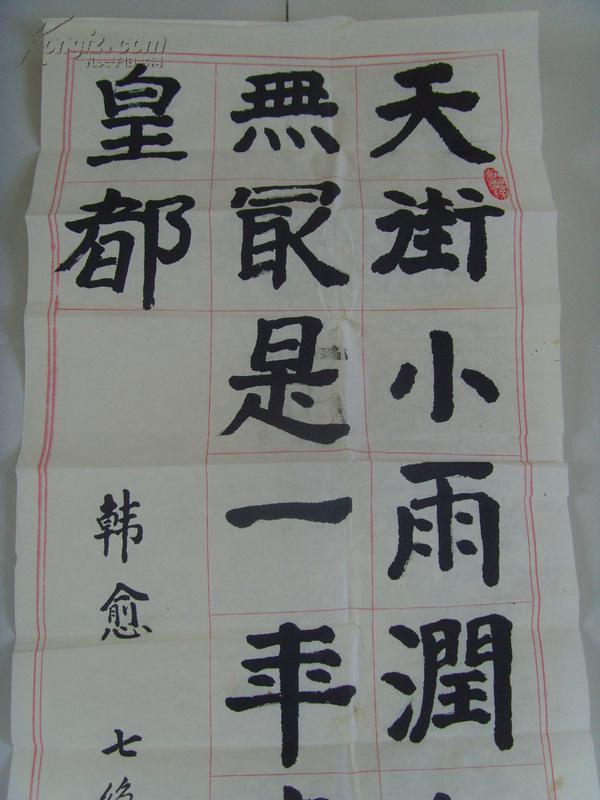 天街小雨潤
無冣是一年
皇都
韩愈
七绝
Kongfz.com
孔夫子旧书网